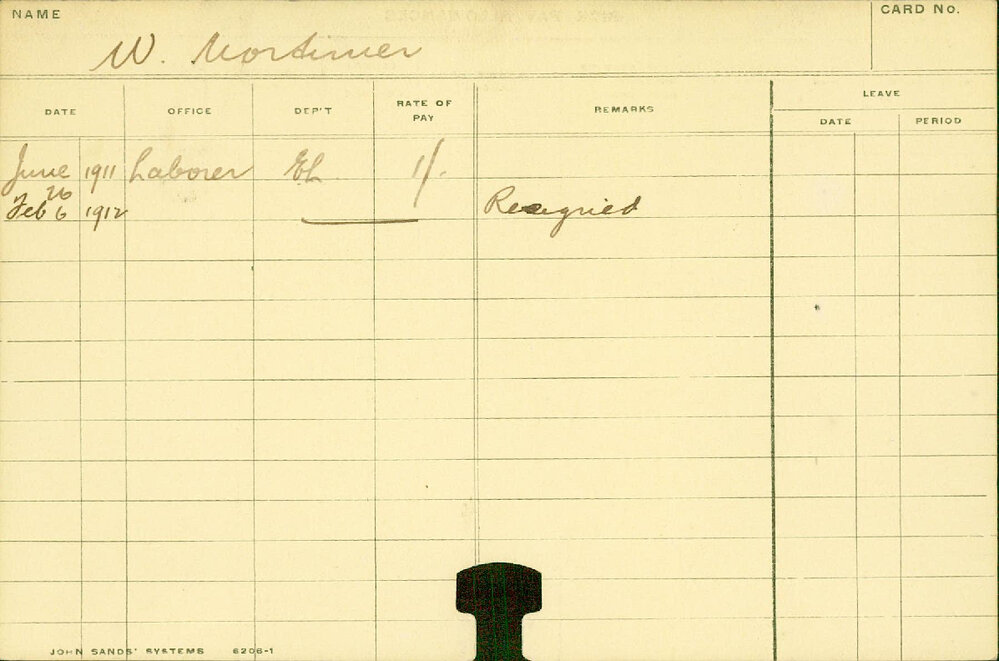 NAME CARD No.
W. Mortimer
LEAVE
DATE OFFICE DEP'T RATE OF PAY REMARKS DATE PERIOD
June 1911 Laborer 1/-
26
Feb 6 1912 Resigned
JOHN SANDS' SYSTEMS 6206-1